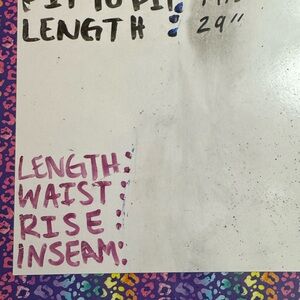 PIT TO PIT:
LENGTH : 29"
LENGTH:
WAIST :
RISE :
INSEAM: